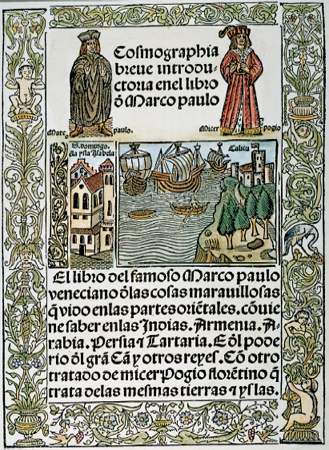 Cosmographia
breue introdu-
ctoria enel libro
ð Marco paulo
Marc paulo.
Micer Pogio
S. domingo.
ẽla ysla Isabela
Calicu
El libro del famoso Marco paulo
veneciano ðlas cosas marauillosas
q̃ vido enlas partes oriẽtales. cõuie
ne saber enlas Indias. Armenia. A-
rabia. Persia ⁊ Tartaria. E ðl pode
rio ðl grã Cã y otros reyes. Cõ otro
tratado de micer Pogio florẽtino q̃
trata delas mesmas tierras ⁊ yslas.